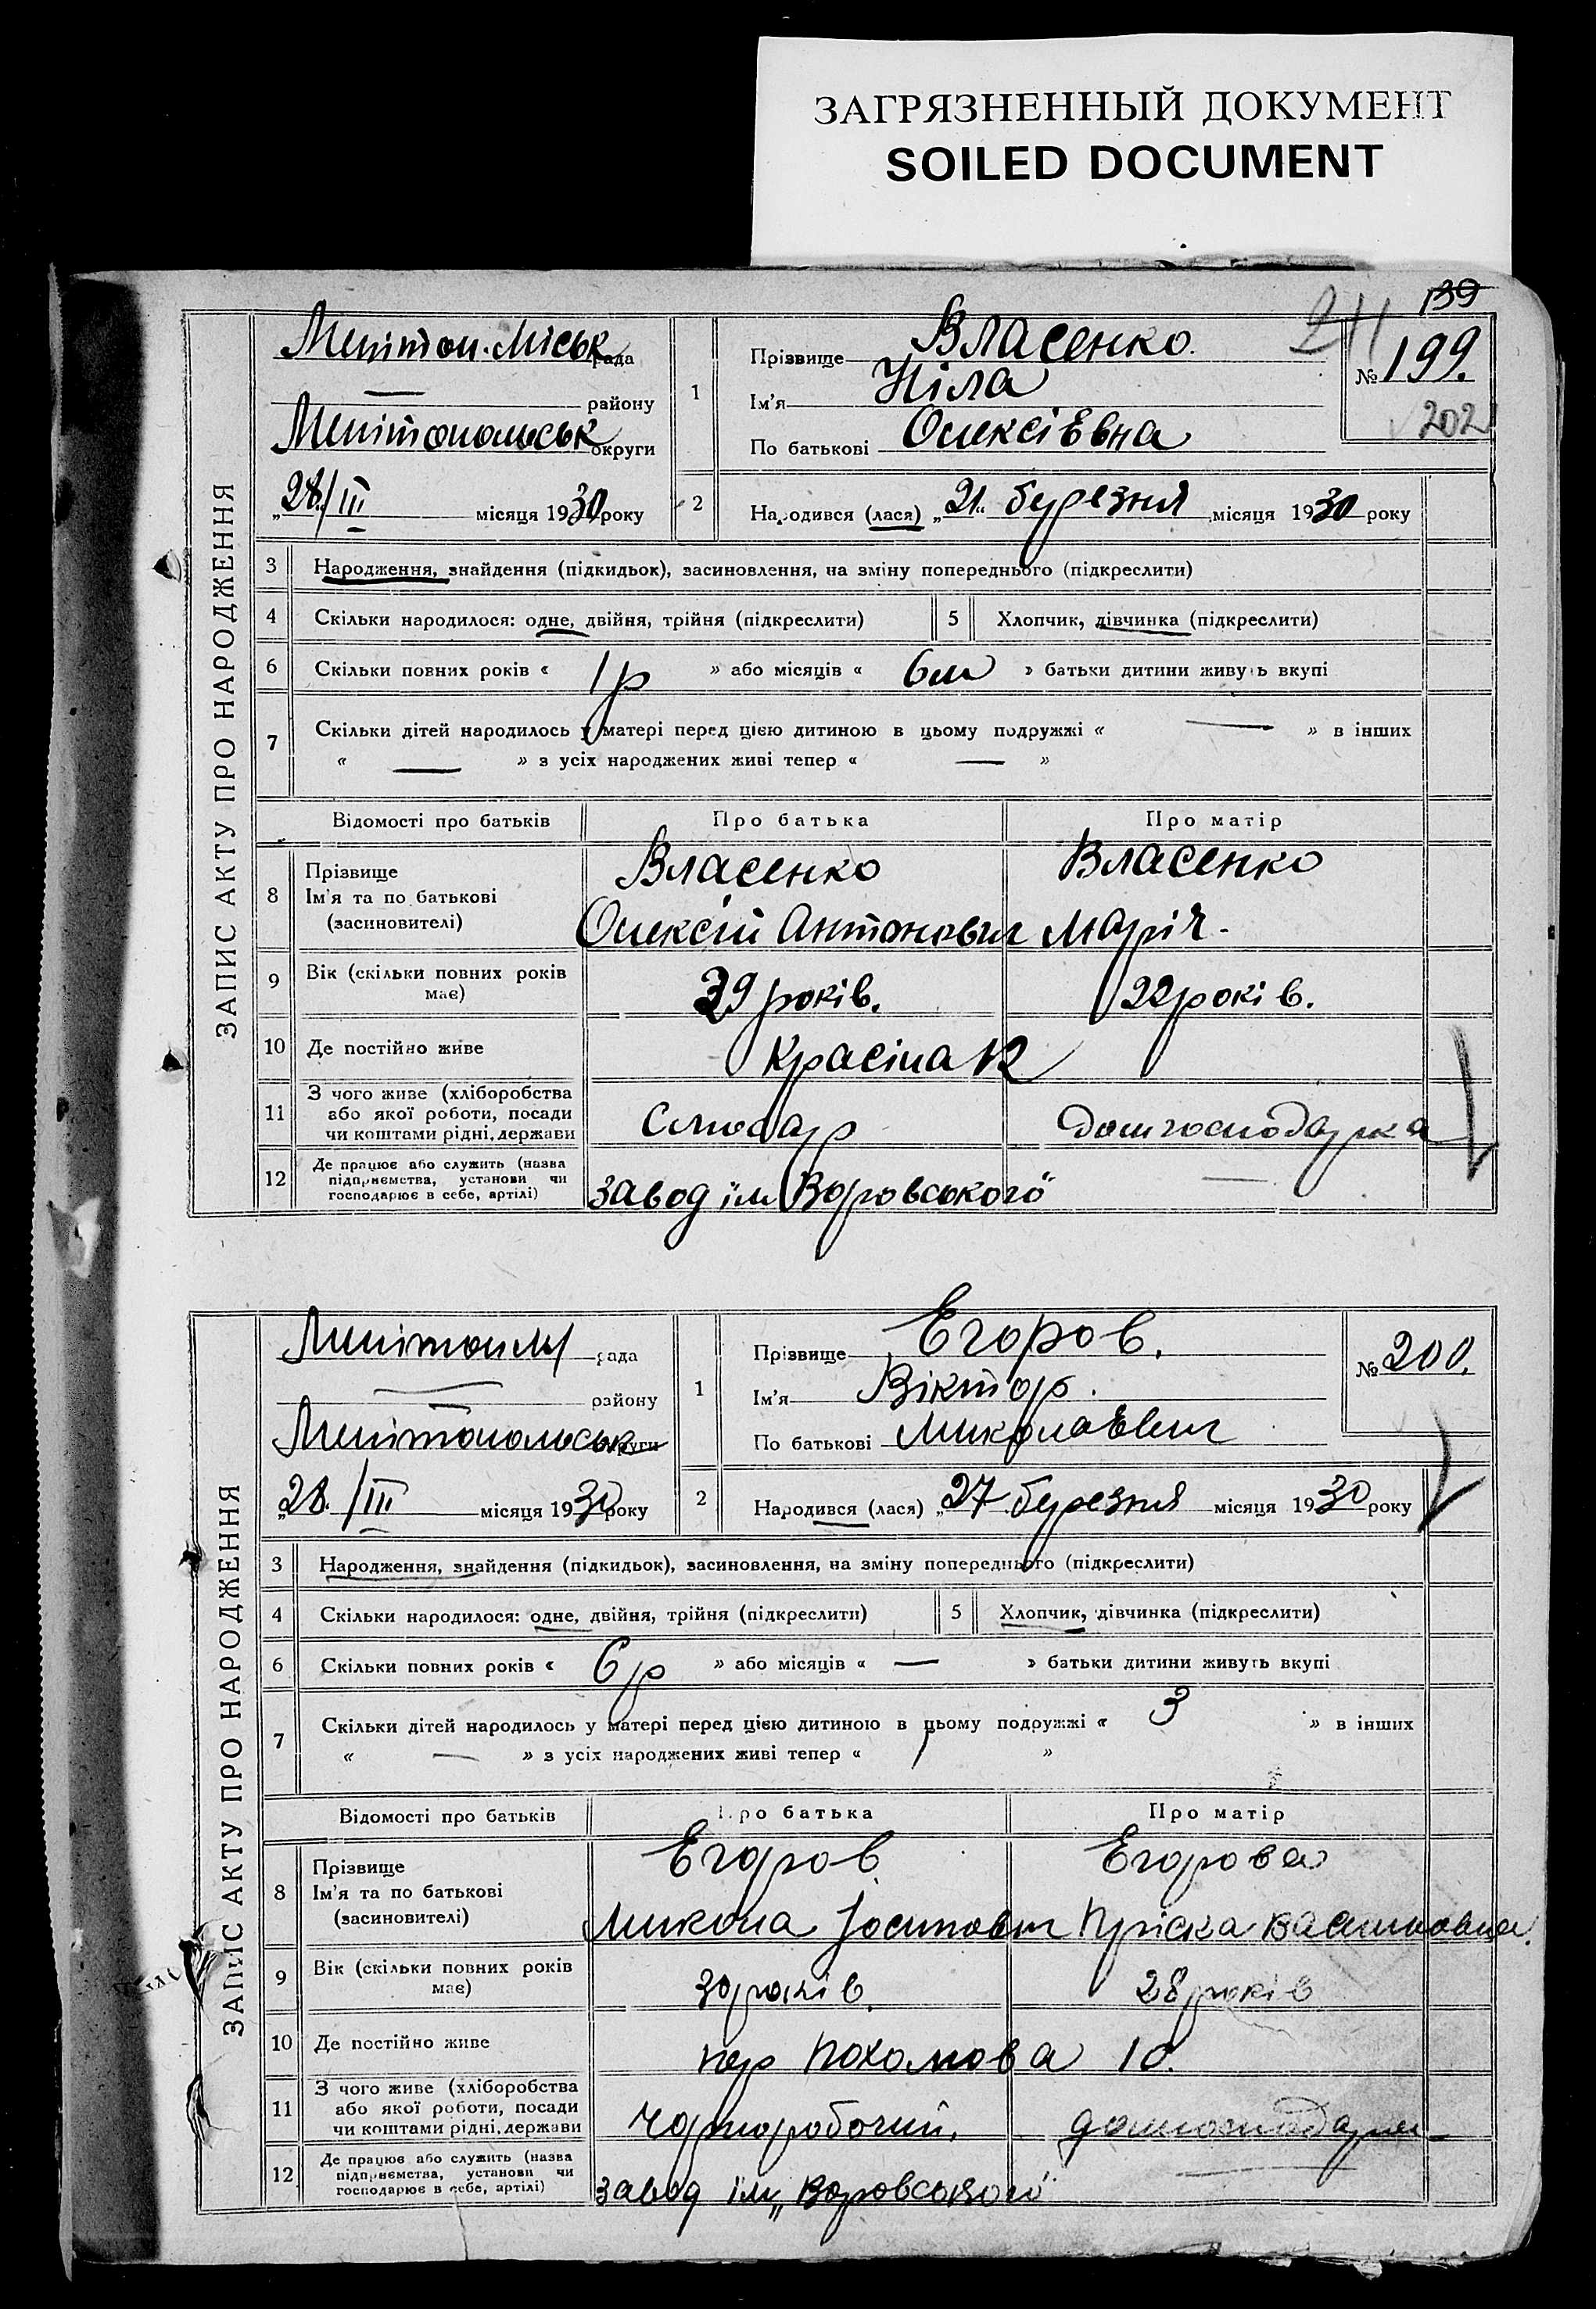 ЗАГРЯЗНЕННЫЙ ДОКУМЕНТ
SOILED DOCUMENT
139
211
ЗАПИС АКТУ ПРО НАРОДЖЕННЯ
Мелітоп. Міськ рада
— району
Мелітопольськ округи
„28/III місяця 1930 року
1 Прізвище Власенко.
Ім'я Ніла
По батькові Олексіевна
№ 199.
202
2 Народився (лася) „21„ березня місяця 1930 року
3 Народження, знайдення (підкидьок), засиновлення, на зміну попереднього (підкреслити)
4 Скільки народилося: одне, двійня, трійня (підкреслити) 5 Хлопчик, дівчинка (підкреслити)
6 Скільки повних років « 1 р » або місяців « 6 м » батьки дитини живуть вкупі
7 Скільки дітей народилось у матері перед цією дитиною в цьому подружжі « — » в інших
« — » з усіх народжених живі тепер « — »
Відомості про батьків Про батька Про матір
8 Прізвище
Ім'я та по батькові
(засиновителі)
Власенко Власенко
Олексій Антонович Марія.
9 Вік (скільки повних років
має)
29 років. 22 років.
10 Де постійно живе
11 З чого живе (хліборобства
або якої роботи, посади
чи коштами рідні, держави
Слюсар Домгосподарка
12 Де працює або служить (назва
підприємства, установи чи
господарює в себе, артілі)
завод ім „Воровського" —
ЗАПИС АКТУ ПРО НАРОДЖЕННЯ
Мелітоп М/ рада
— району
Мелітопольськ округи
„28. /III місяця 1930 року
1 Прізвище Егоров.
Ім'я Віктор.
По батькові Миколаевич
№ 200.
2 Народився (лася) „27 березня місяця 1930 року
3 Народження, знайдення (підкидьок), засиновлення, на зміну попереднього (підкреслити)
4 Скільки народилося: одне, двійня, трійня (підкреслити) 5 Хлопчик, дівчинка (підкреслити)
6 Скільки повних років « 6 р » або місяців « — » батьки дитини живуть вкупі
7 Скільки дітей народилось у матері перед цією дитиною в цьому подружжі « 3 » в інших
« — » з усіх народжених живі тепер « 1 »
Відомості про батьків Про батька Про матір
8 Прізвище
Ім'я та по батькові
(засиновителі)
Егоров Егорова
Микола Йосипович Пріска Василівна.
9 Вік (скільки повних років
має)
30 років. 28 років
10 Де постійно живе
пер Похомова 10.
11 З чого живе (хліборобства
або якої роботи, посади
чи коштами рідні, держави
Чорноробочий. домгосподарк
12 Де працює або служить (назва
підприємства, установи чи
господарює в себе, артілі)
завод ім „Воровського" —